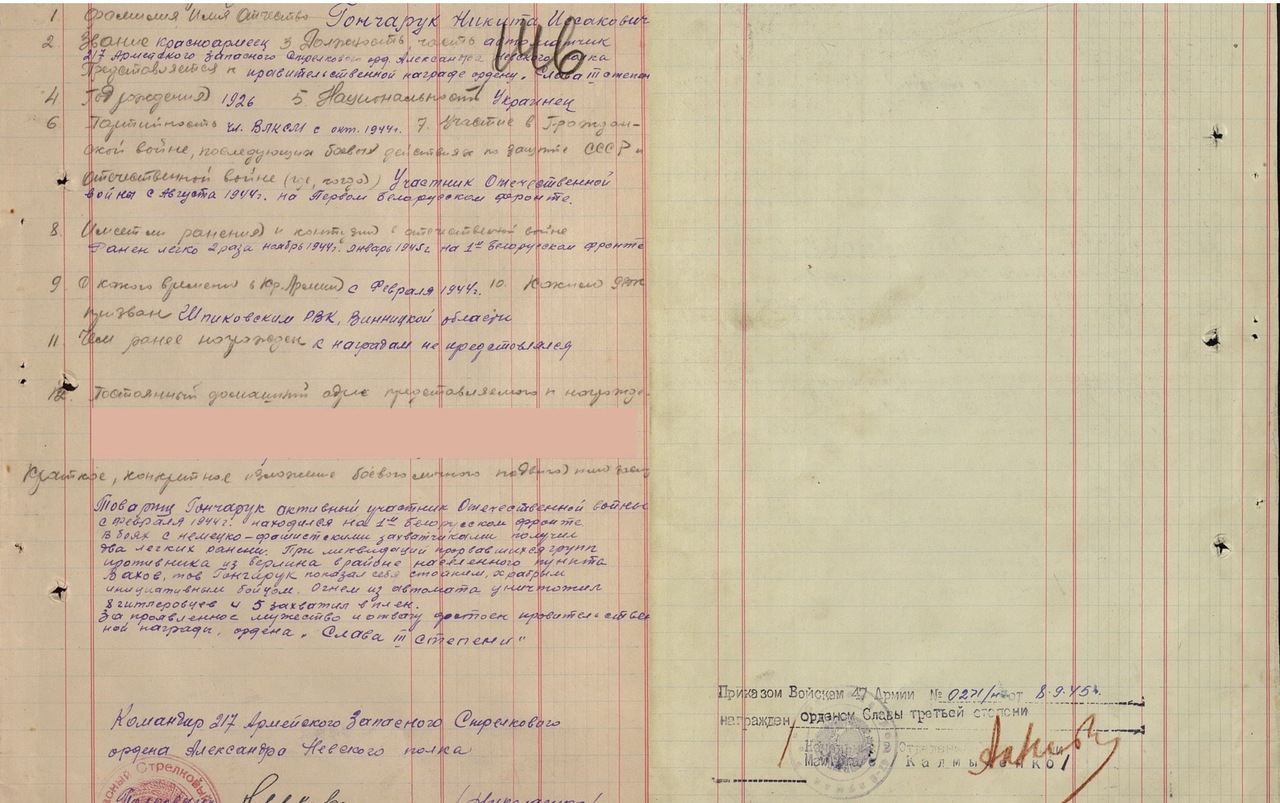 1 Фамилия Имя Отчество Гончарук Никита Исакович
146
2 Звание красноармеец 3 Должность, часть автоматчик
217 Армейского Запасного Стрелкового орд. Александра Невского полка
Представляется к правительственной награде ордену „Слава III степени
4 Год рождения 1926 5 Национальность Украинец
6 Партийность чл. ВЛКСМ с окт. 1944г. 7. Участие в Граждан-
ской войне, последующих боевых действиях по защите СССР и
отечественной войне (где, когда) Участник Отечественной
войны с Августа 1944г. на Первом Белорусском фронте.
8. Имеет ли ранения и контузии в отечественной войне
Ранен легко 2 раза ноябрь 1944г. январь 1945г на 1ᵐ Белорусском фронте
9 С какого времени в Кр. Армии с Февраля 1944г. 10. Каким
призван Шпиковским РВК, Винницкой области
11 Чем ранее награжден к наградам не предстовлялся
12. Постоянный домашний адрес представляемого к награжде-
Краткое, конкретное изложение боевого личного подвига или
Товарищ Гончарук активный участник Отечественной войны
с февраля 1944г. находился на 1ᵐ Белорусском фронте
В боях с немецко-фашистскими захватчиками получил
два легких ранени. При ликвидаций прорвавшихся групп
противника из берлина в районе населенного пункта
Вахов, тов Гончарук показал себя стойким, храбрым
инициативным бойцом. Огнем из автомата уничтожил
8 гитлеровцев и 5 захватил в плен.
За проявленное мужество и отвагу достоен провительствен
ной награды, ордена „Слава III Степени"
Командир 217 Армейского Запасного Стрелкового
ордена Александра Невского полка
Стрелковый
Полковник /Николаенко/
Приказом Войскам 47 Армии № 0271/н от 8.9.45г.
награжден орденом Славы третьей степени
Отделения
Майор Калмыченко/